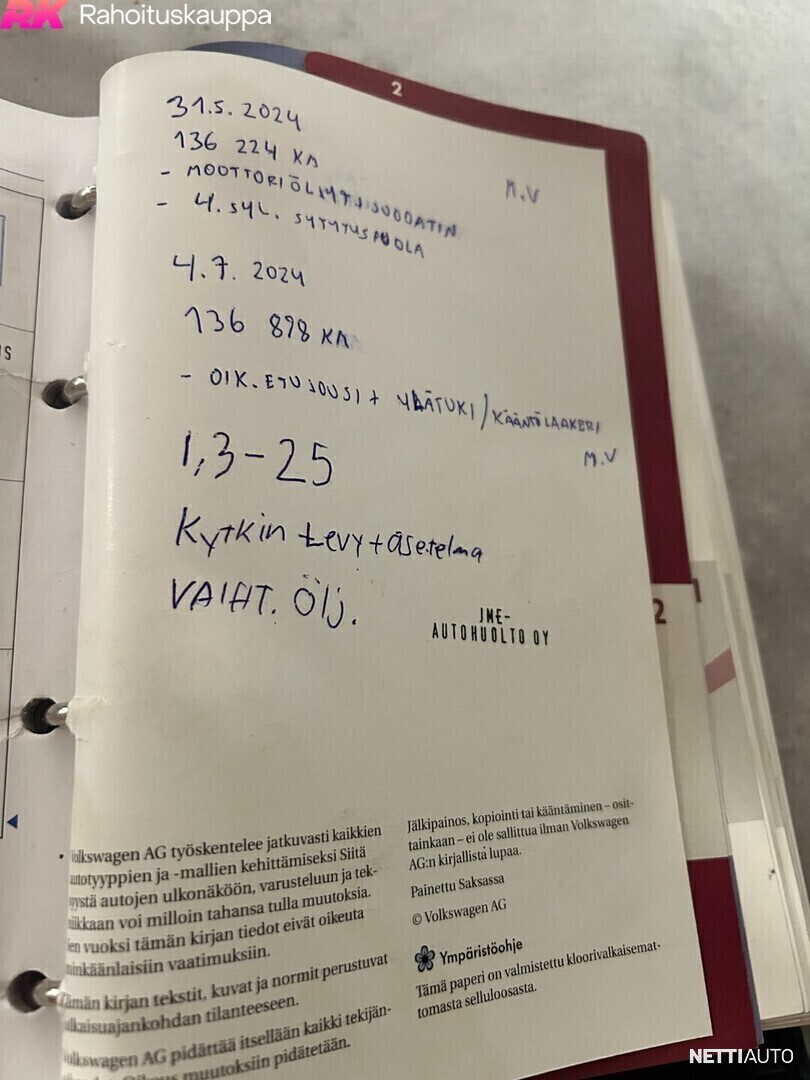 RK Rahoituskauppa
2
31.5. 2024
136 224 KM
- MOOTTORIÖLJYT+SUODATIN
M.V
- 4. SYL. SYTYTUSPUOLA
4.7. 2024
136 898 KM
- OIK. ETUJOUSI + YLÄTUKI/KÄÄNTÖLAAKERI
M.V
1,3-25
Kytkin Levy+asetelma
VAIHT. Ölj.
JME-
AUTOHUOLTO OY
2
1
S
Volkswagen AG työskentelee jatkuvasti kaikkien
autotyyppien ja -mallien kehittämiseksi Siitä
systä autojen ulkonäköön, varusteluun ja tek-
niikkaan voi milloin tahansa tulla muutoksia.
en vuoksi tämän kirjan tiedot eivät oikeuta
minkäänlaisiin vaatimuksiin.
Tämän kirjan tekstit, kuvat ja normit perustuvat
julkaisuajankohdan tilanteeseen.
Volkswagen AG pidättää itsellään kaikki tekijän-
Oikeus muutoksiin pidätetään.
Jälkipainos, kopiointi tai kääntäminen – osit-
tainkaan – ei ole sallittua ilman Volkswagen
AG:n kirjallista lupaa.
Painettu Saksassa
© Volkswagen AG
Ympäristöohje
Tämä paperi on valmistettu kloorivalkaisemat-
tomasta selluloosasta.
NETTIAUTO